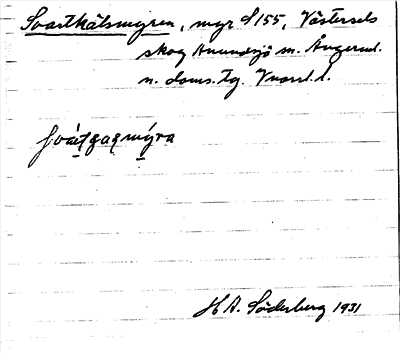 Svartkälsmyren, myr S155, Västersels
skog Anundsjö sn. Ångerml.
n. doms. tg. Vnorrl. l.
H A. Söderberg 1931